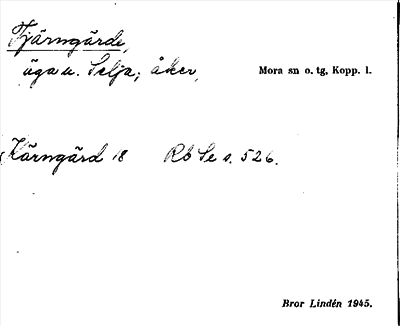 Tjärngärde,
äga u. Selja; åker, Mora sn o. tg, Kopp. l.
Kärngärd 18 Rb Se s. 526.
Bror Lindén 1945.